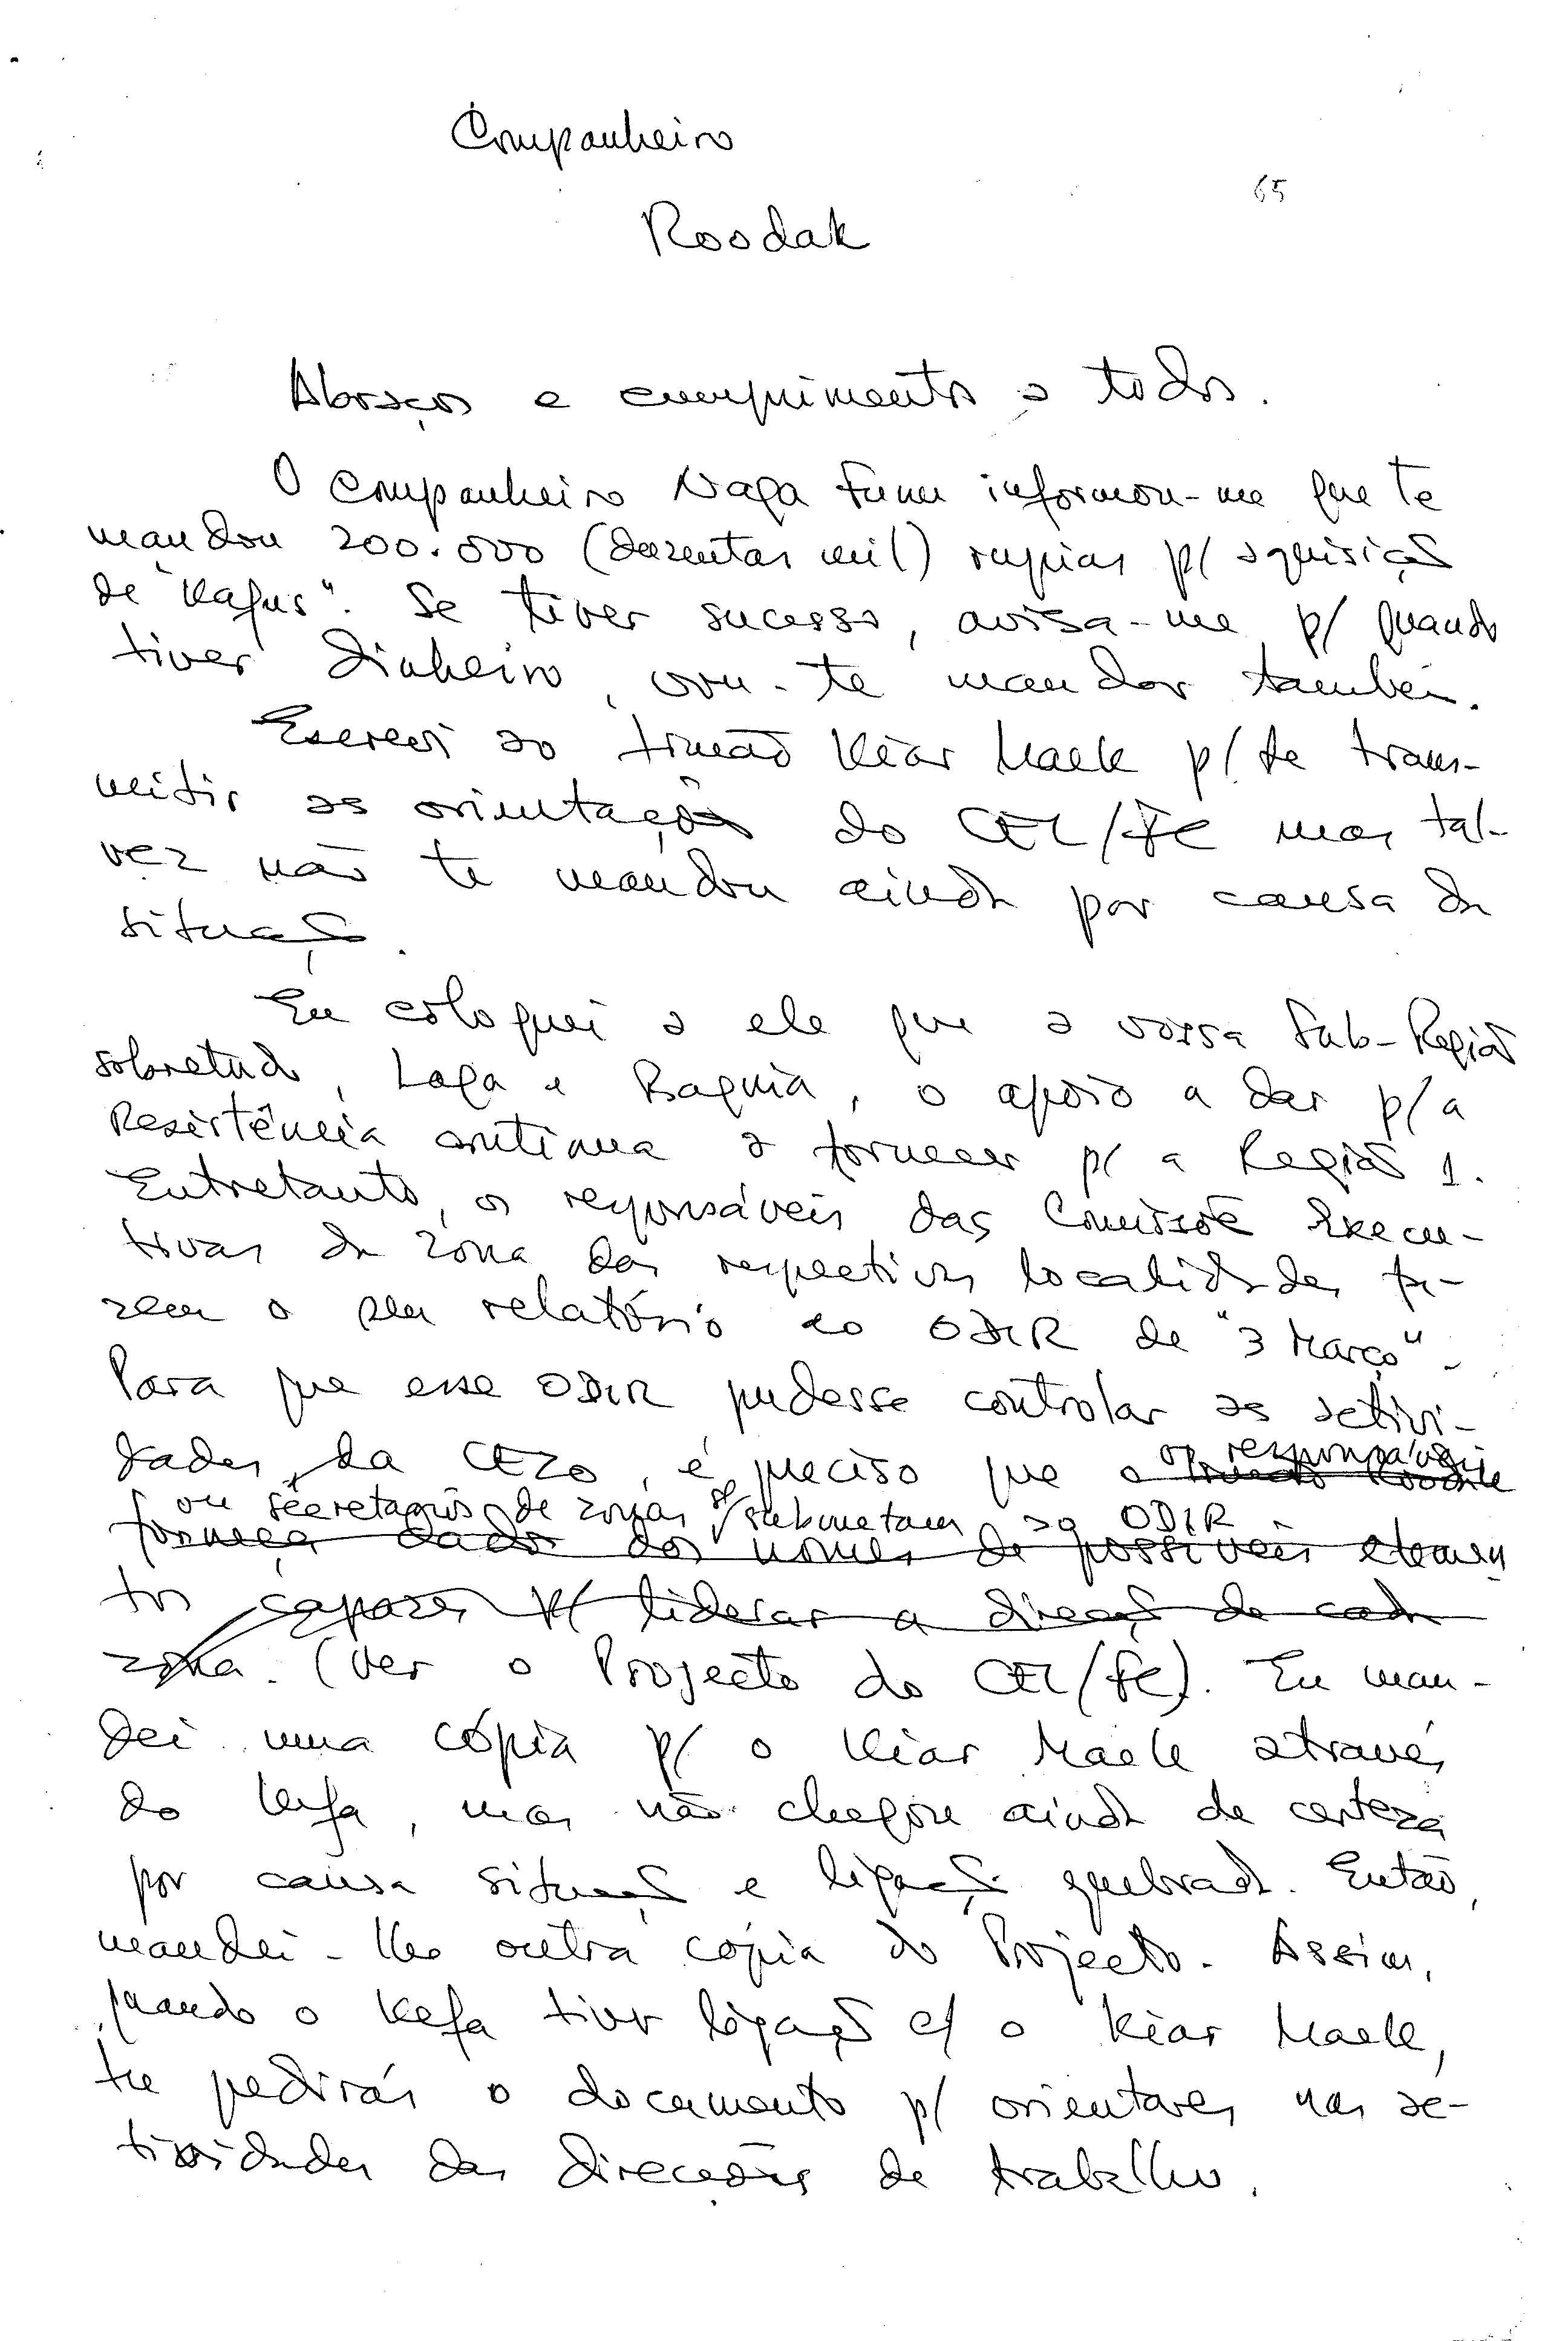 Companheiro
65
Roodak
Abraços e cumprimentos a todos.
O Companheiro Naga Funu informou-me que te
mandou 200.000 (duzentas mil) rupias p/ aquisição
de "kafus". Se tiver sucesso, avisa-me p/ quando
tiver dinheiro, vou-te mandar também.
Escrevi ao Irmão Kiar Maek p/ te trans-
mitir as orientações do CEL/FC mas tal-
vez não te mandou ainda por causa da
situação.
Eu coloquei a ele que a vossa Sub-Região
sobretudo, Laga e Baguia, o apoio a dar p/ a
Resistência continua a fornecer p/ a Região 1.
Entretanto, os responsáveis das Comissõe Execu-
tivas da Zona das respectivas localidades fa-
zem o seu relatório ao ODIR de "3 Março".
Para que esse ODIR pudesse controlar as activi-
dades da CEZO, é preciso que o
os responsáveis
ou secretários de zonas submetam ao ODIR
forneça dados dos nomes de possíveis elemen
tos capazes p/ liderar a direcção de cada
zona. (Ver o Projecto do CEL/FC). Eu man-
dei uma cópia p/ o Kiar Maek através
do Kefa, mas não chegou ainda de certeza
por causa situação e ligação quebrada. Então,
mandei-lhe outra cópia do Projecto. Assim,
quando o Kefa tiver ligação c/ o Kiar Maek,
tu pedirás o documento p/ orientares nas ac-
tividades das direcções de trabalho.